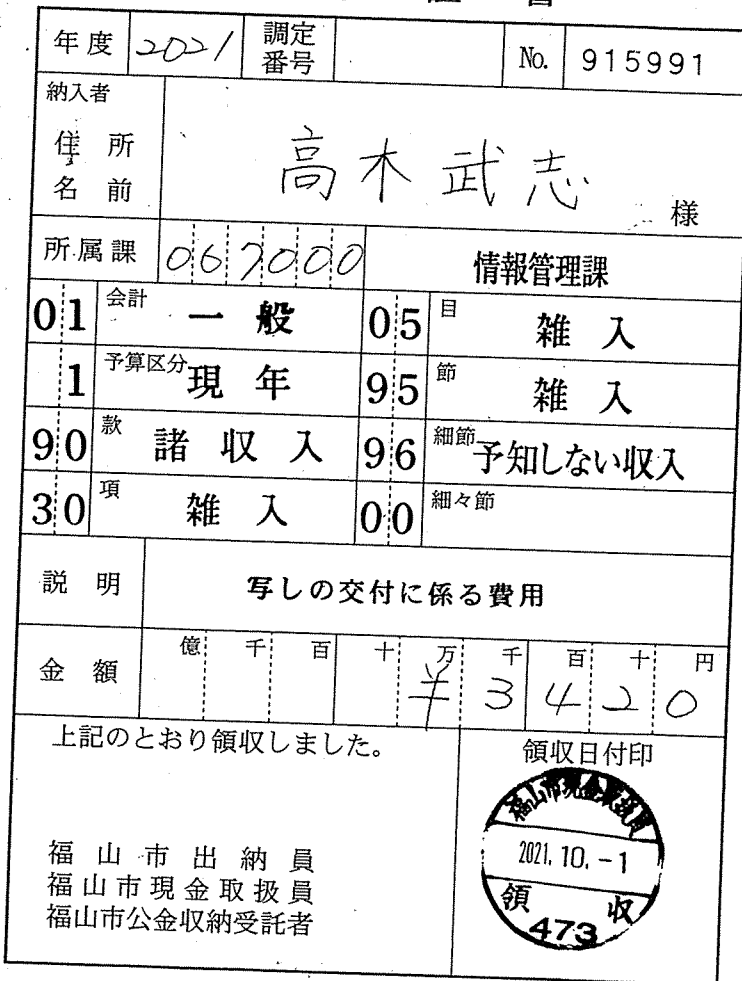 年度 2021 調定番号 No. 915991
納入者
住所
名前
高木武志 様
所属課 067000 情報管理課
01 会計 一般 05 目 雑入
1 予算区分 現年 95 節 雑入
90 款 諸収入 96 細節 予知しない収入
30 項 雑入 00 細々節
説明 写しの交付に係る費用
億 千 百 十 万 千 百 十 円
金額 ¥3420
上記のとおり領収しました。 領収日付印
福山市出納員
福山市現金取扱員
福山市公金収納受託者
福山市現金取扱員
2021.10.-1
領収
473